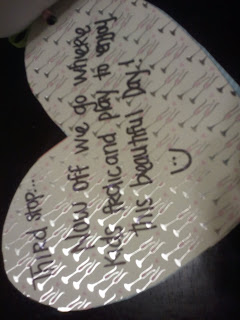 Third stop...
Now off we go where
kids frolic and play to enjoy
this beautiful Day!